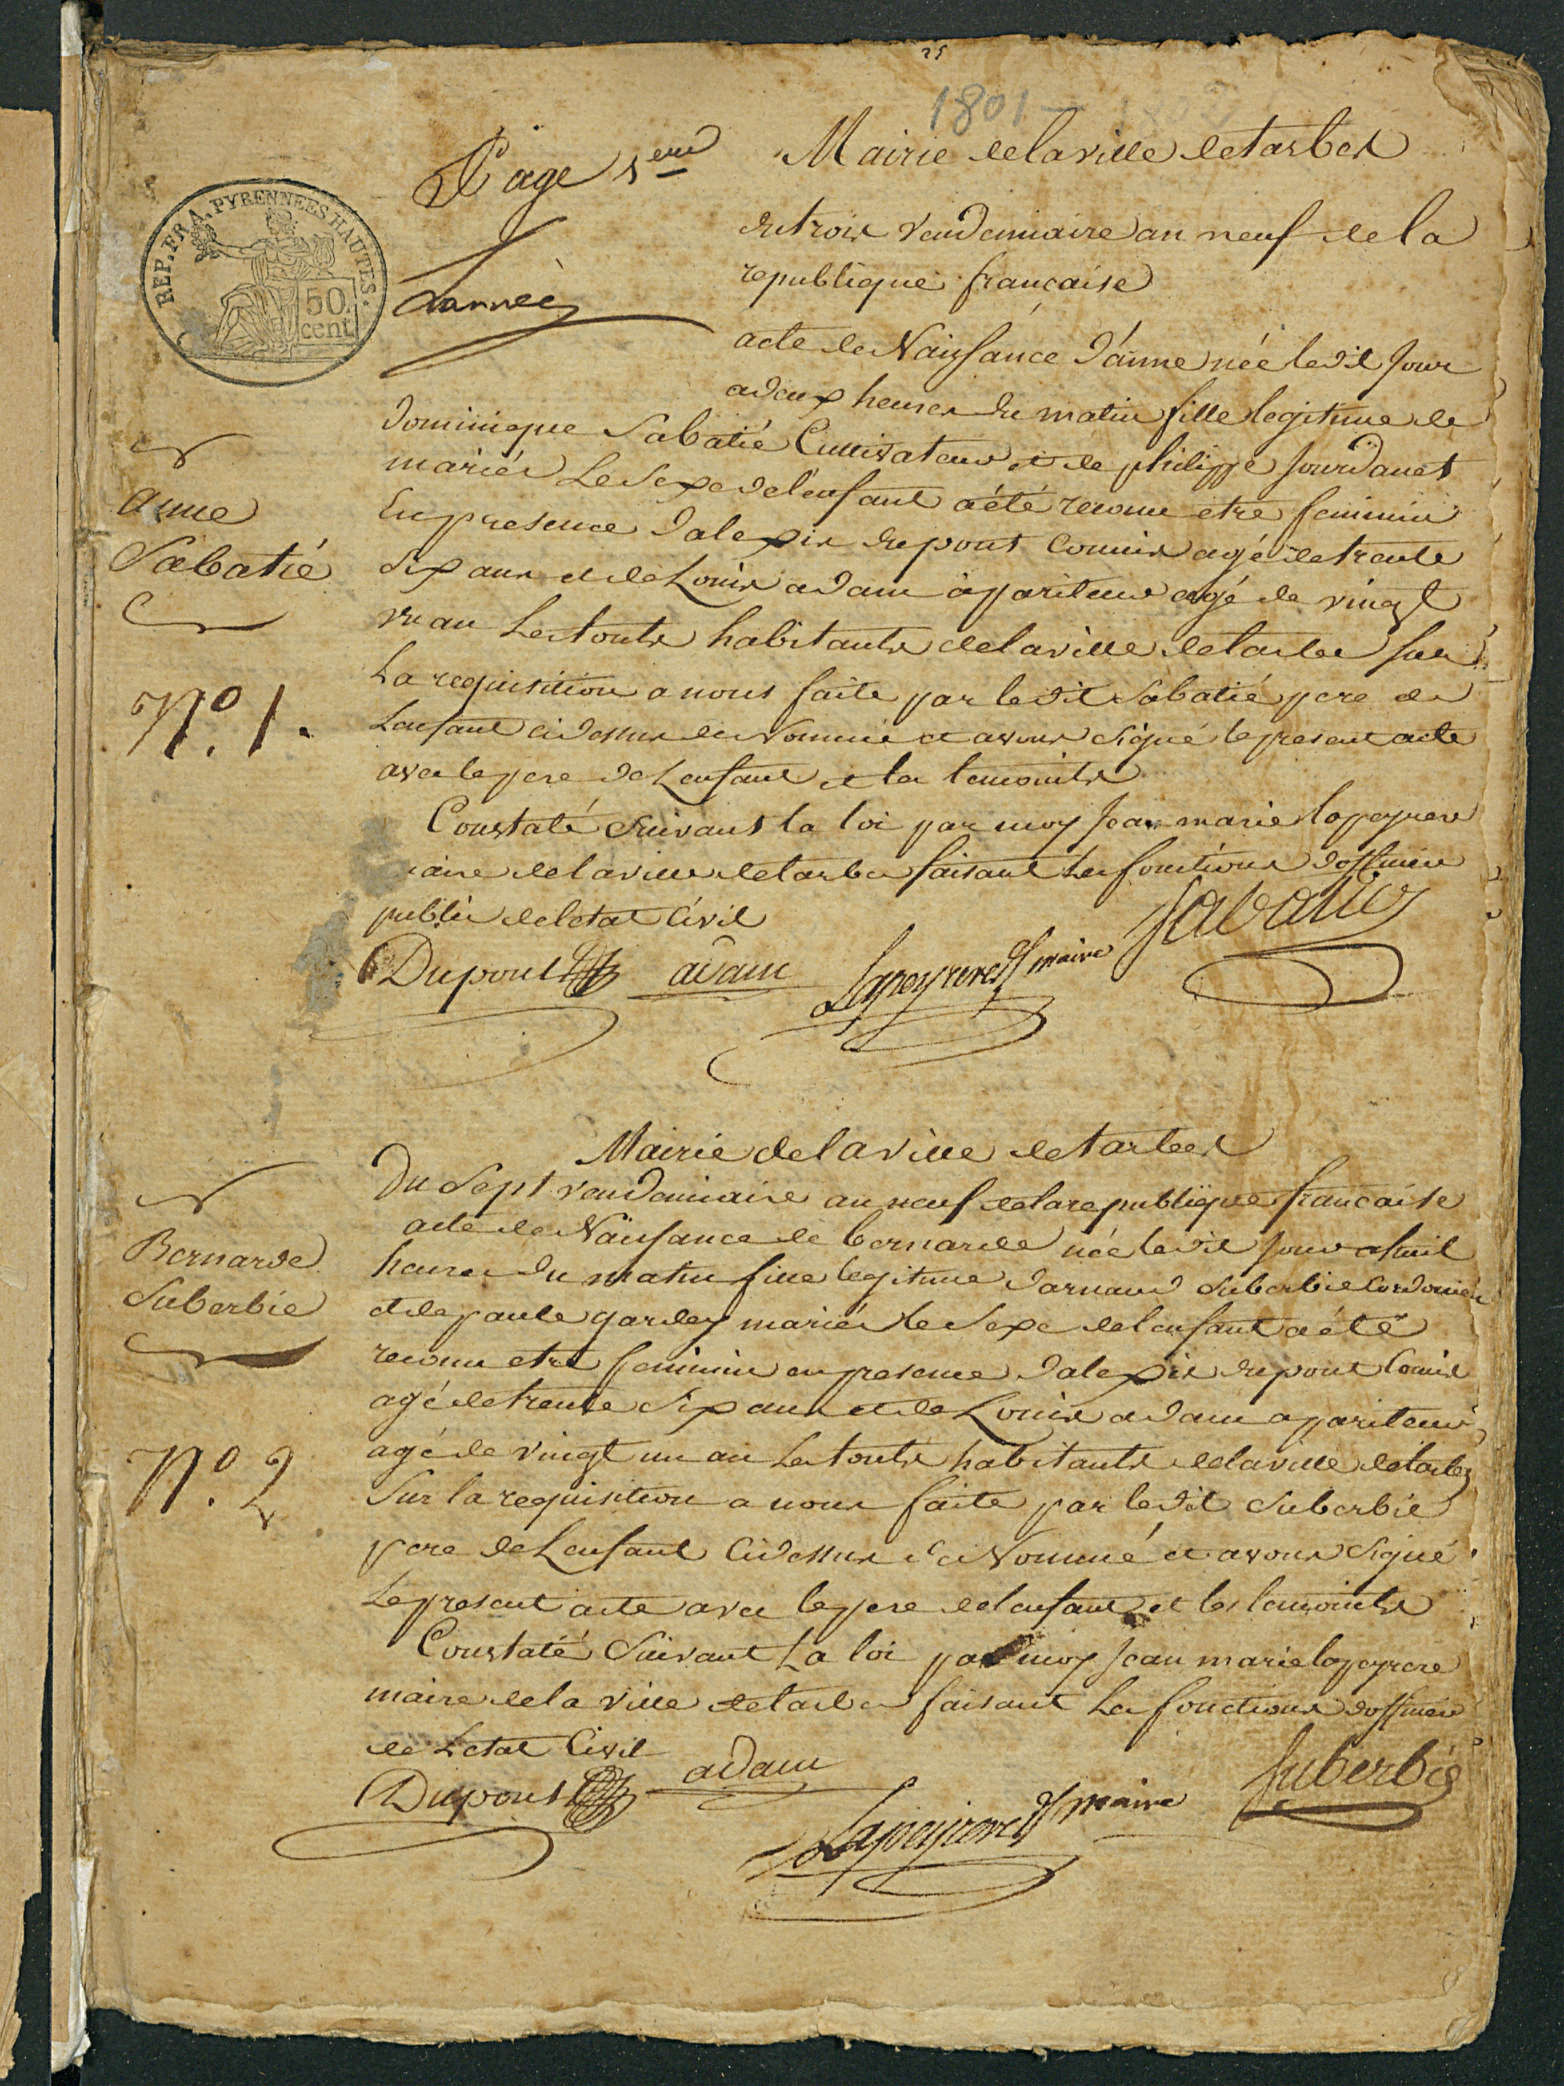 25
1801 - 1802
Page 1ere
Mairie de la ville de tarbes
REP. FRA. PYRENNEES HAUTES.
50 cent
du trois vendemiaire an neuf de la
republique française
acte de Naissance d'anne née le dit jour
a deux heures du matin fille legitime de
dominique Sabatié Cultivateur et de philippe Jourdanet
mariés Le Sexe de l'enfant a été reconu etre feminin
En presence d'alexis dupont Commis agé de trente
six ans et de Louis adam apariteur agé de vingt
un an Les touts habitants de la ville de tarbes sur
La requisition a nous faite par le dit Sabatié pere de
Lenfant ci dessus de Nommé et avons signé le present acte
avec le pere de Lenfant et les temoints
Constaté suivant la loi par moy Jean marie lapeyrere
maire de la ville de tarbes faisant Les fonctions d'officier
public de letat Civil
anne
Sabatié
No. 1.
Dupont adam Lapeyrere maire Sabatié
Mairie de la ville de tarbes
Du Sept vendemiaire an neuf de la republique française
acte de Naissance de bernarde née le dit jour a huit
heures du matin fille legitime d'arnaud Suberbie Cordonier
et de paule gardey mariés le Sexe de lenfant a été
reconu etre feminin en presence d'alexis dupont Comis
agé de trente six ans et de Louis adam apariteur
agé de vingt un an Les touts habitants de la ville de tarbes
Sur la requisition a nous faite par le dit Suberbie
pere de Lenfant Ci dessus de Nommé et avons signé
Le present acte avec le pere de lenfant et les temoints
Constaté Suivant La loi par moy Jean marie lapeyrere
maire de la ville de tarbes faisant Les fonctions d'officier
de Letat Civil
Bernarde
Suberbie
No. 2
Dupont adam Lapeyrere maire Suberbie